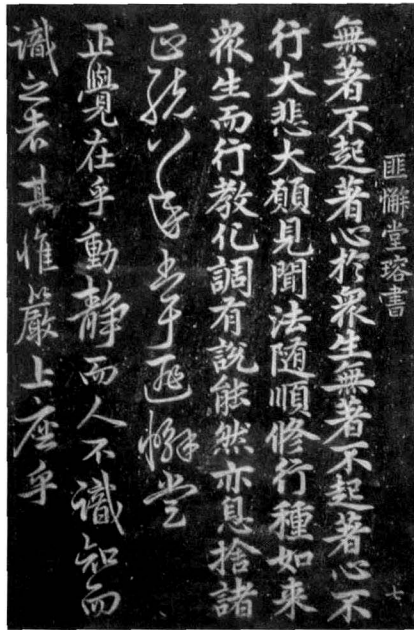 匪懈堂瑢書
無著不起著心於衆生無著不起著心不
行大悲大願見聞法随順修行種如来
衆生而行教化調有說能然亦息捨諸
正統八年書于匪懈堂
正覺在乎動静而人不識知而
識之者其惟巖上座乎
七